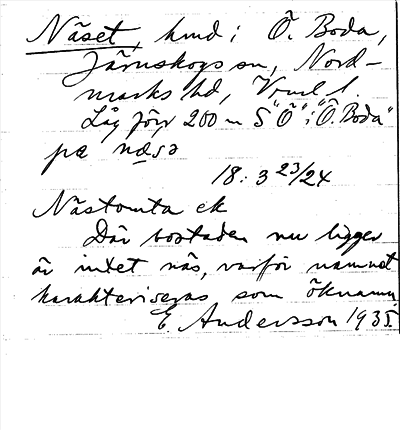 Näset, hmd i Ö. Boda,
Järnskogs sn, Nord-
marks hd, Vrml. l.
Låg förr 200 m S "Ö" i "Ö. Boda"
pæ næsə
18:3 23/24
Nästomta ek
Där bostaden nu ligger
är intet näs, varför namnet
karakteriseras som öknamn.
E. Andersson 1935.